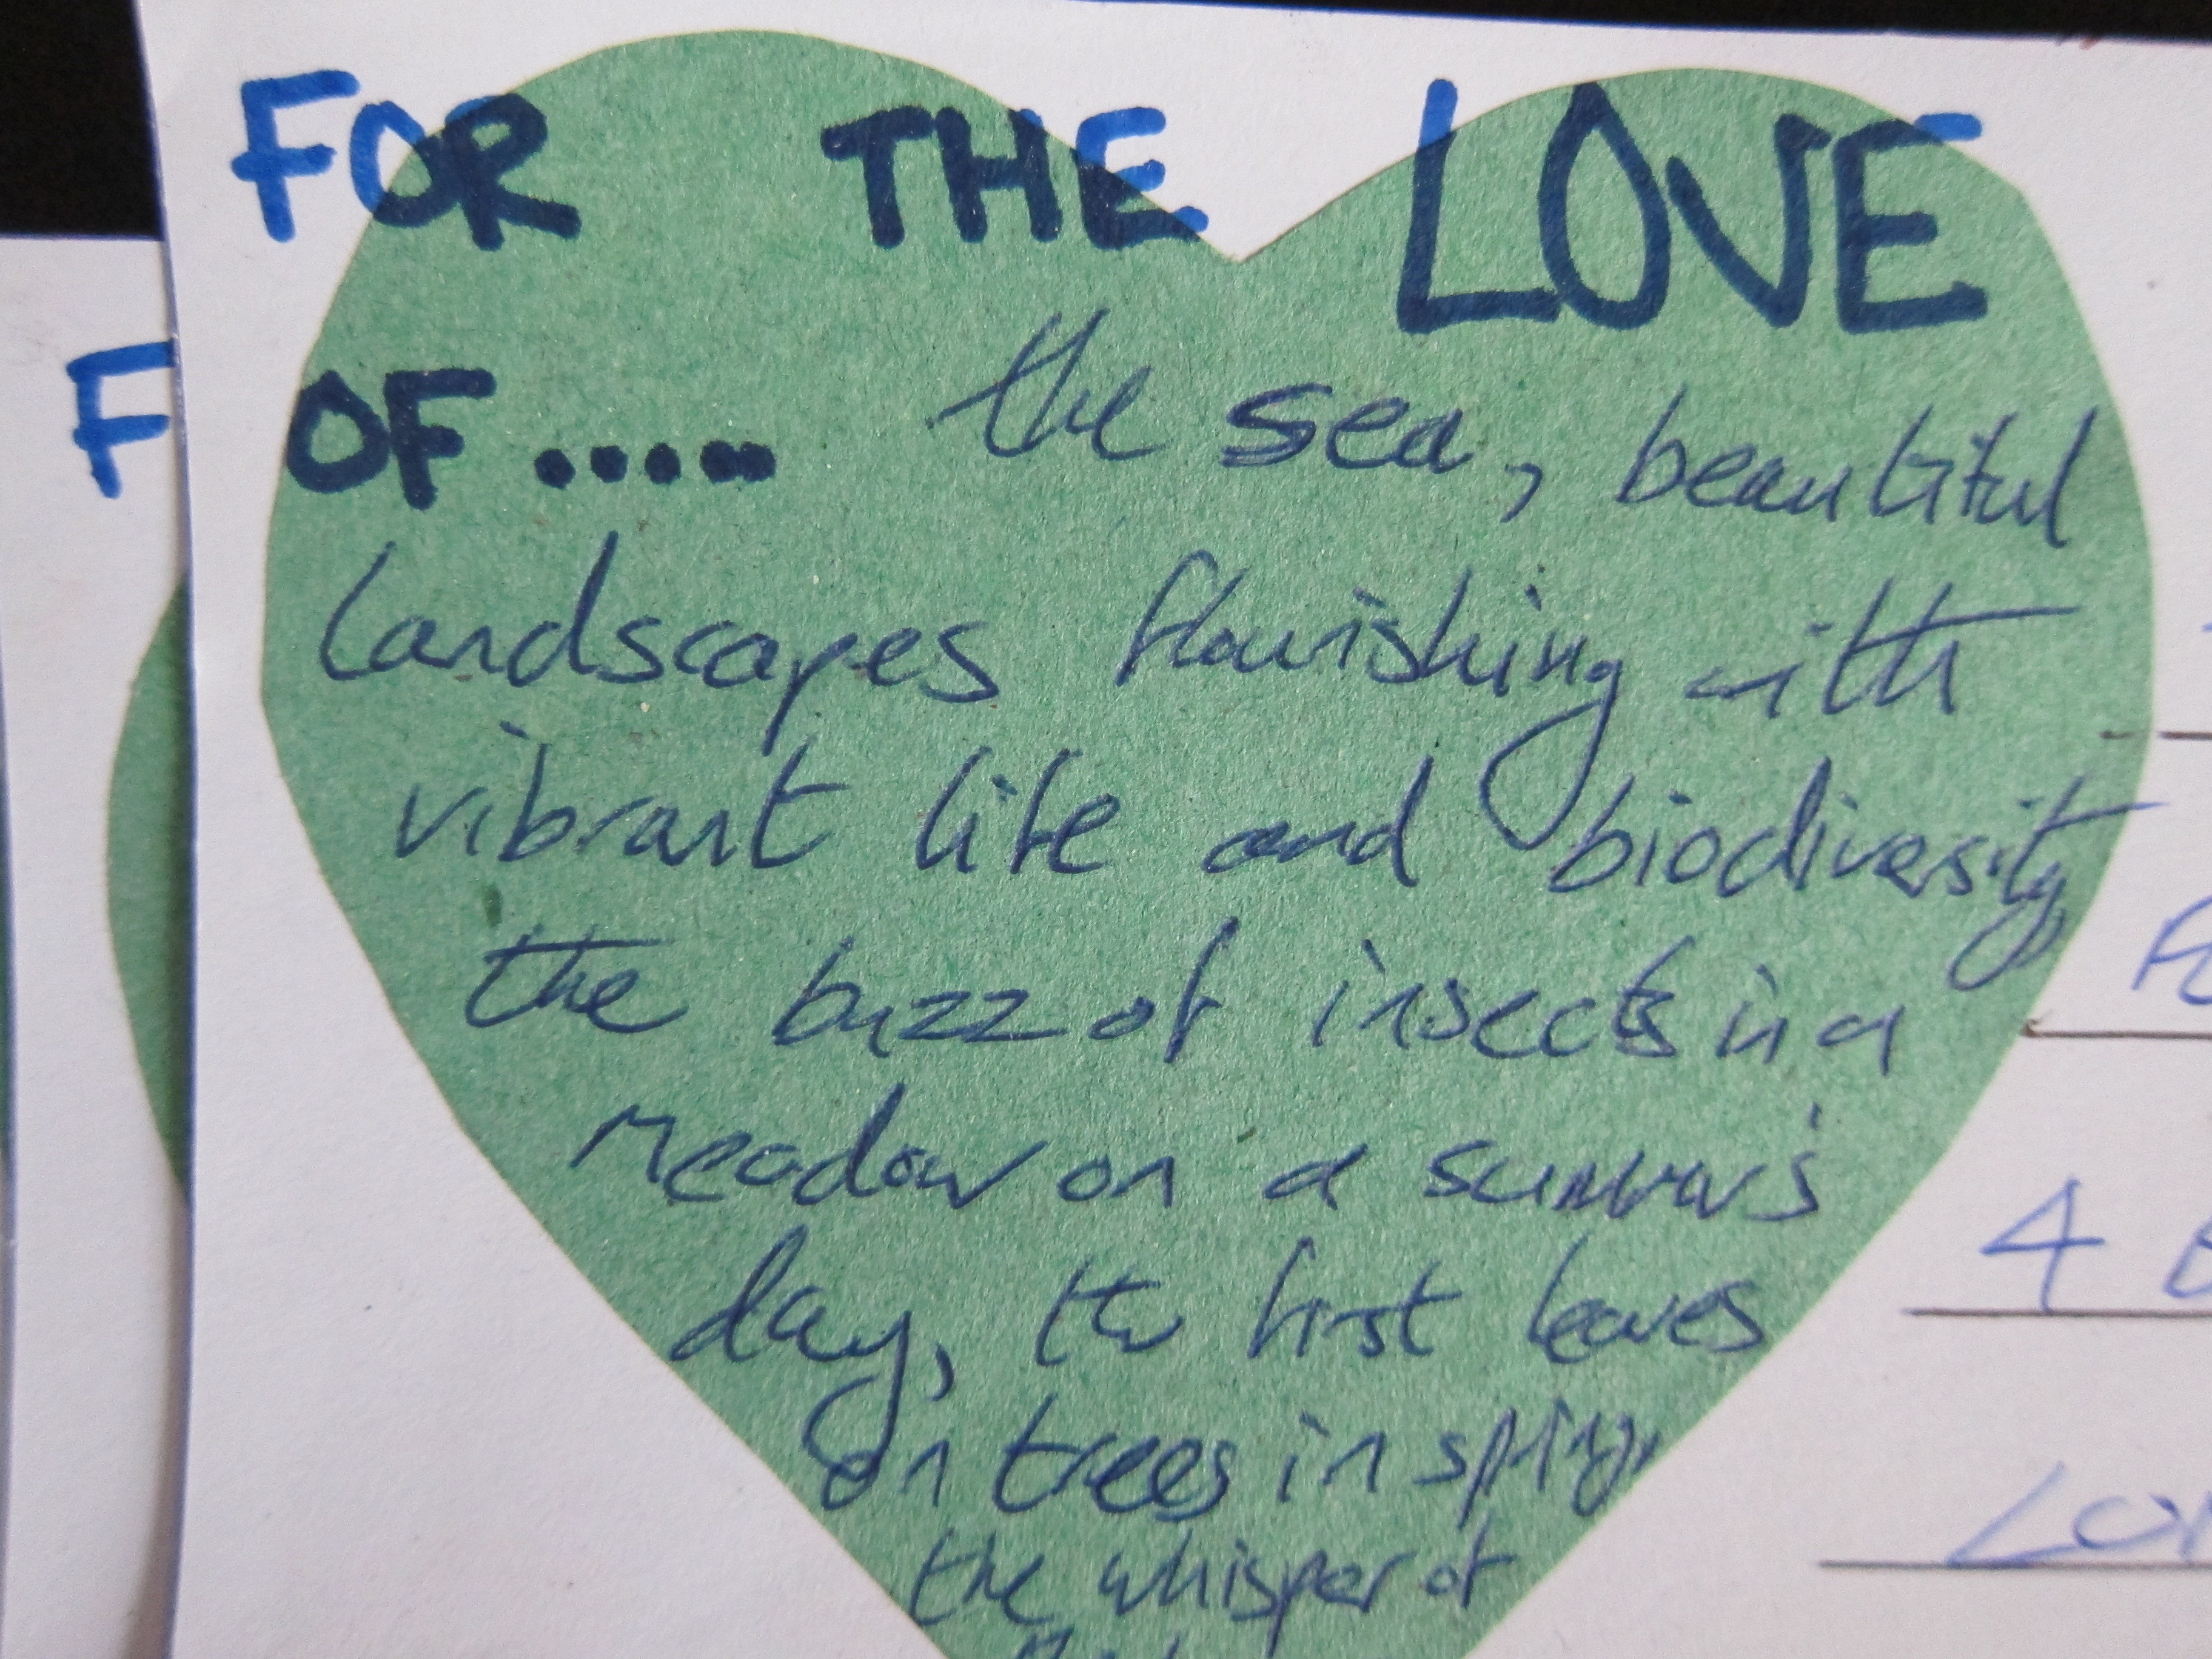 FOR THE LOVE
OF..... the sea, beautiful
landscapes flourishing with
vibrant life and biodiversity
the buzz of insects in a
meadow on a summer's
day, the first leaves
on trees in spring,
the whisper of
F
4